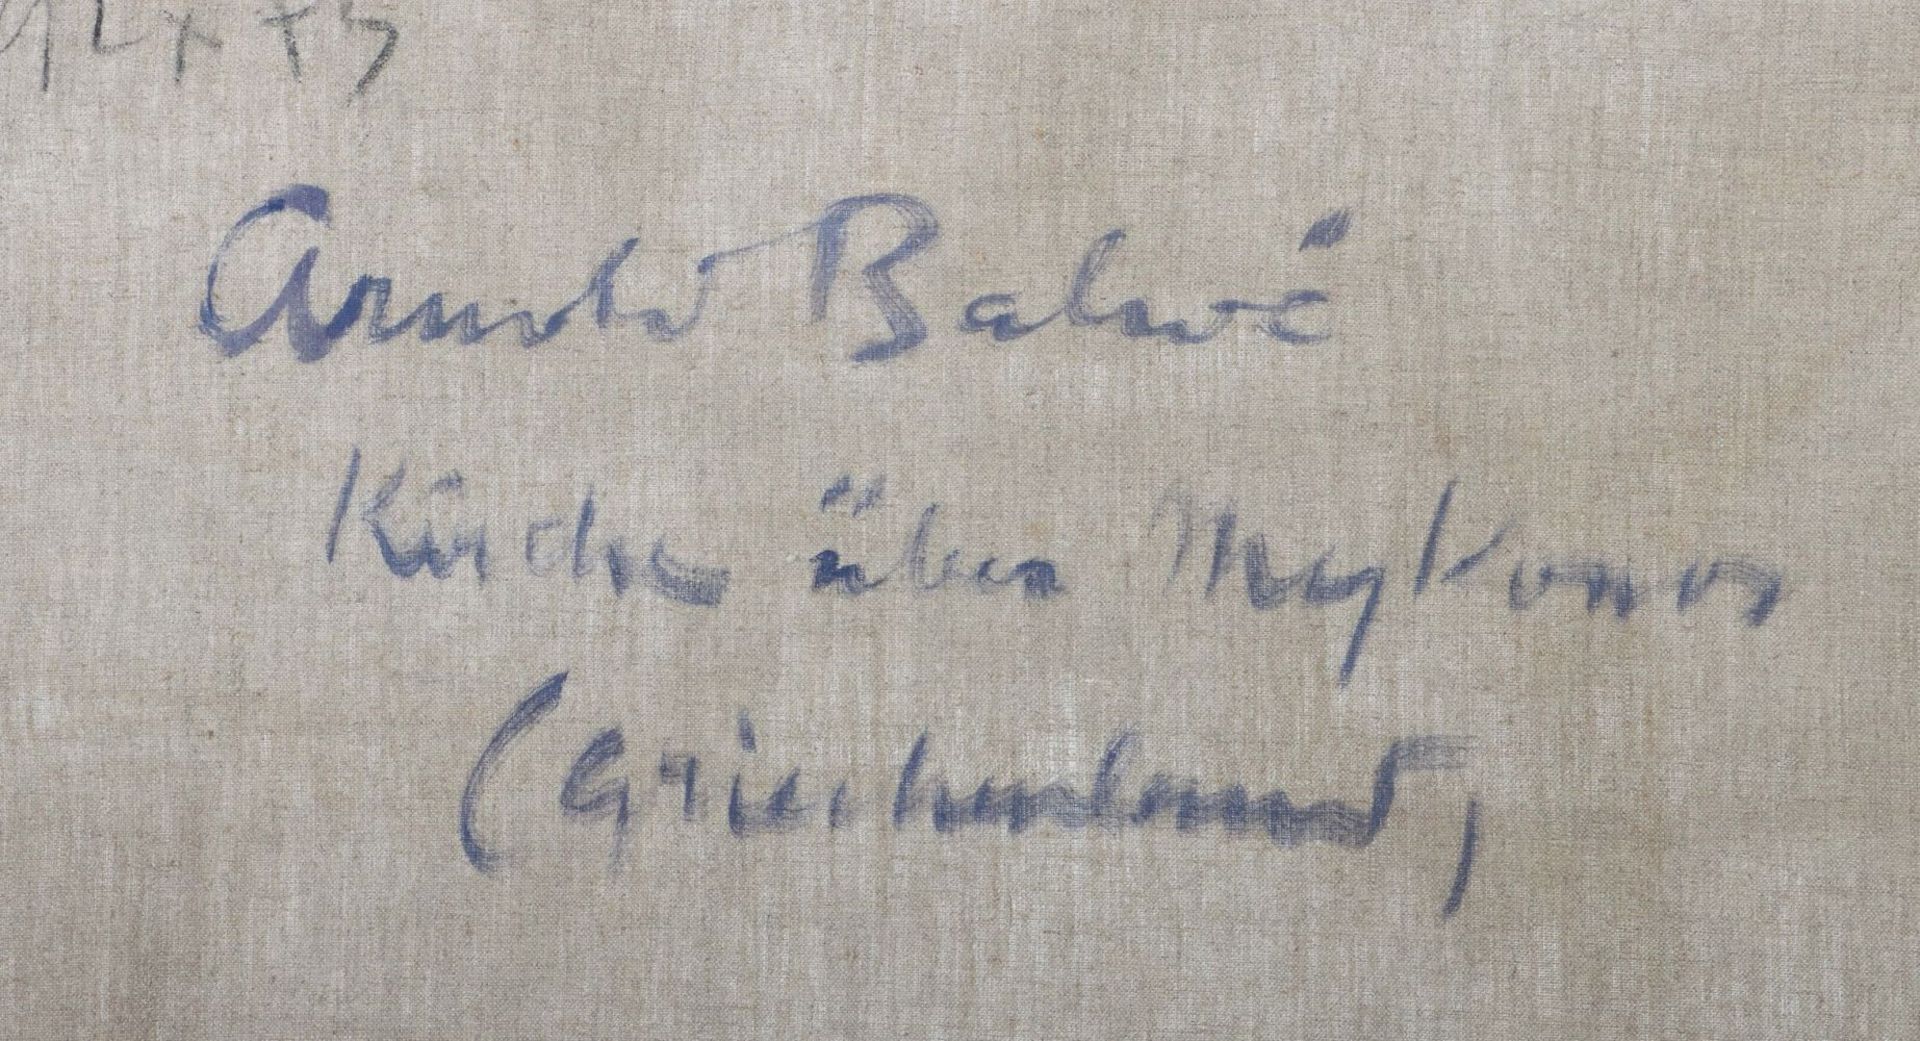 92 x 73
Arnold Balwé
Kirche über Mykonos
(Griechenland)